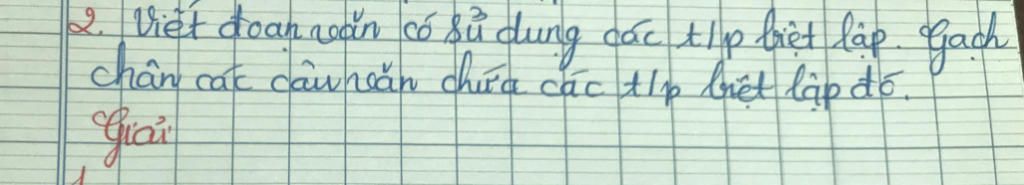 2. Viết đoạn văn có sử dụng các t/p biệt lập. Gạch
chân các câu văn chứa các t/p biệt lập đó.
Giải
1